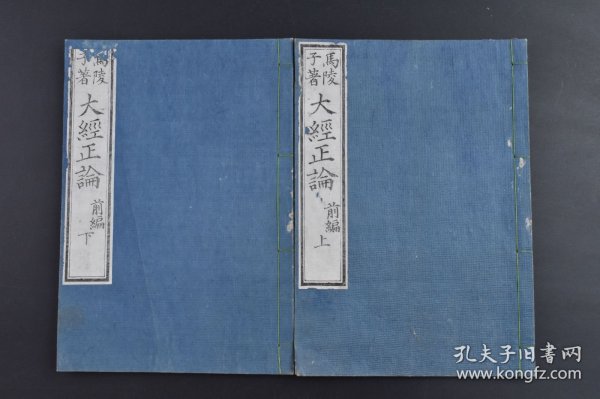 馬陵
子著
大經正論
前編
上
馬陵
子著
大經正論
前編
下
孔夫子旧书网
www.kongfz.com